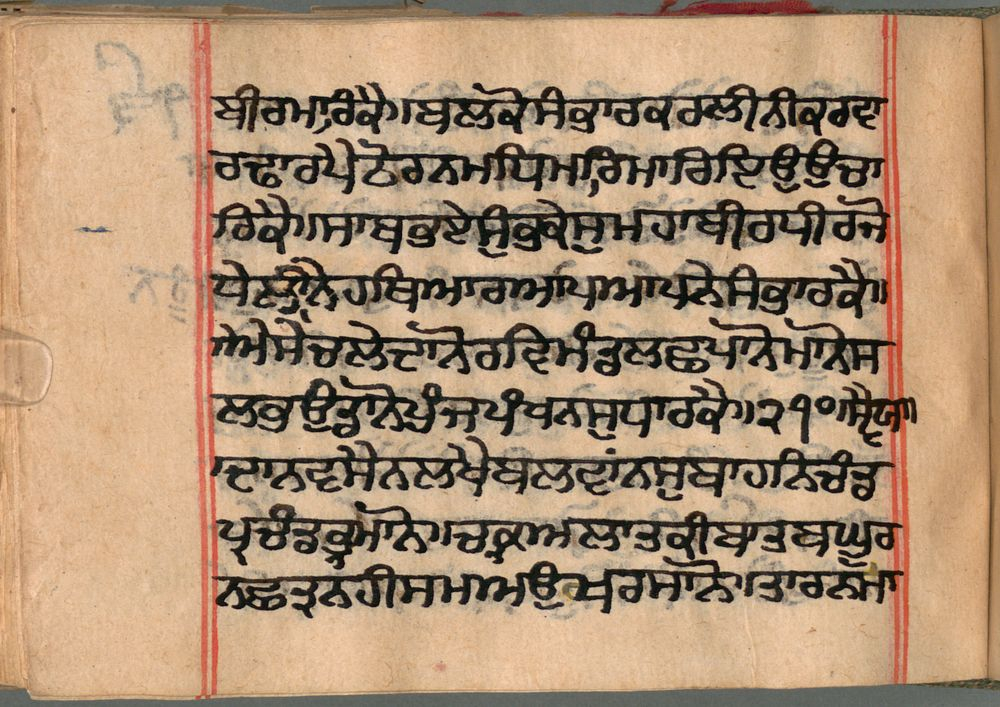 ਬੀਰਮਾਰਿਕੈ॥ਬਲਕੋਸਿਕਾਰਕਰਲੀਨੀਕਰਵਾ
ਰਢਾਰਪੈਠੋਰਨਮਧਿਮਾਰਿਮਾਰਿਇਉਉਚਾ
ਰਿਕੈ॥ਸਾਬਕੁਏਸਿਕੁਕੇਸੁਮਹਾਬੀਰਧੀਰਜੋ
ਧੇਲੀਨੈਹਥਿਆਰਆਪਆਪਨੇਸਿਕਾਰਕੈ॥
ਐਸੇਚਲੇਦਾਨੋਰਵਿਮੰਡਲਛਪਾਨੋਮਾਨੋਸ
ਲਕੁਉਡਾਨੋਪੁੰਜਪੰਖਨਸੁਧਾਰਕੈ॥੨੧੦॥ਸ੍ਵੈਯਾ॥
ਦਾਨਵਸੈਨਲਖੈਬਲਵਾਂਨਸੁਬਾਹਨਿਚੰਡ
ਪ੍ਰਚੰਡਭ੍ਰਮਾਨੋ॥ਚਕ੍ਰਅਲਾਤਕੀਬਾਤਬਘੂਰ
ਨਛਤ੍ਰਨਹੀਸਮਅਉਖਰਸਾਨੋ॥ਤਾਰਨਮਾ